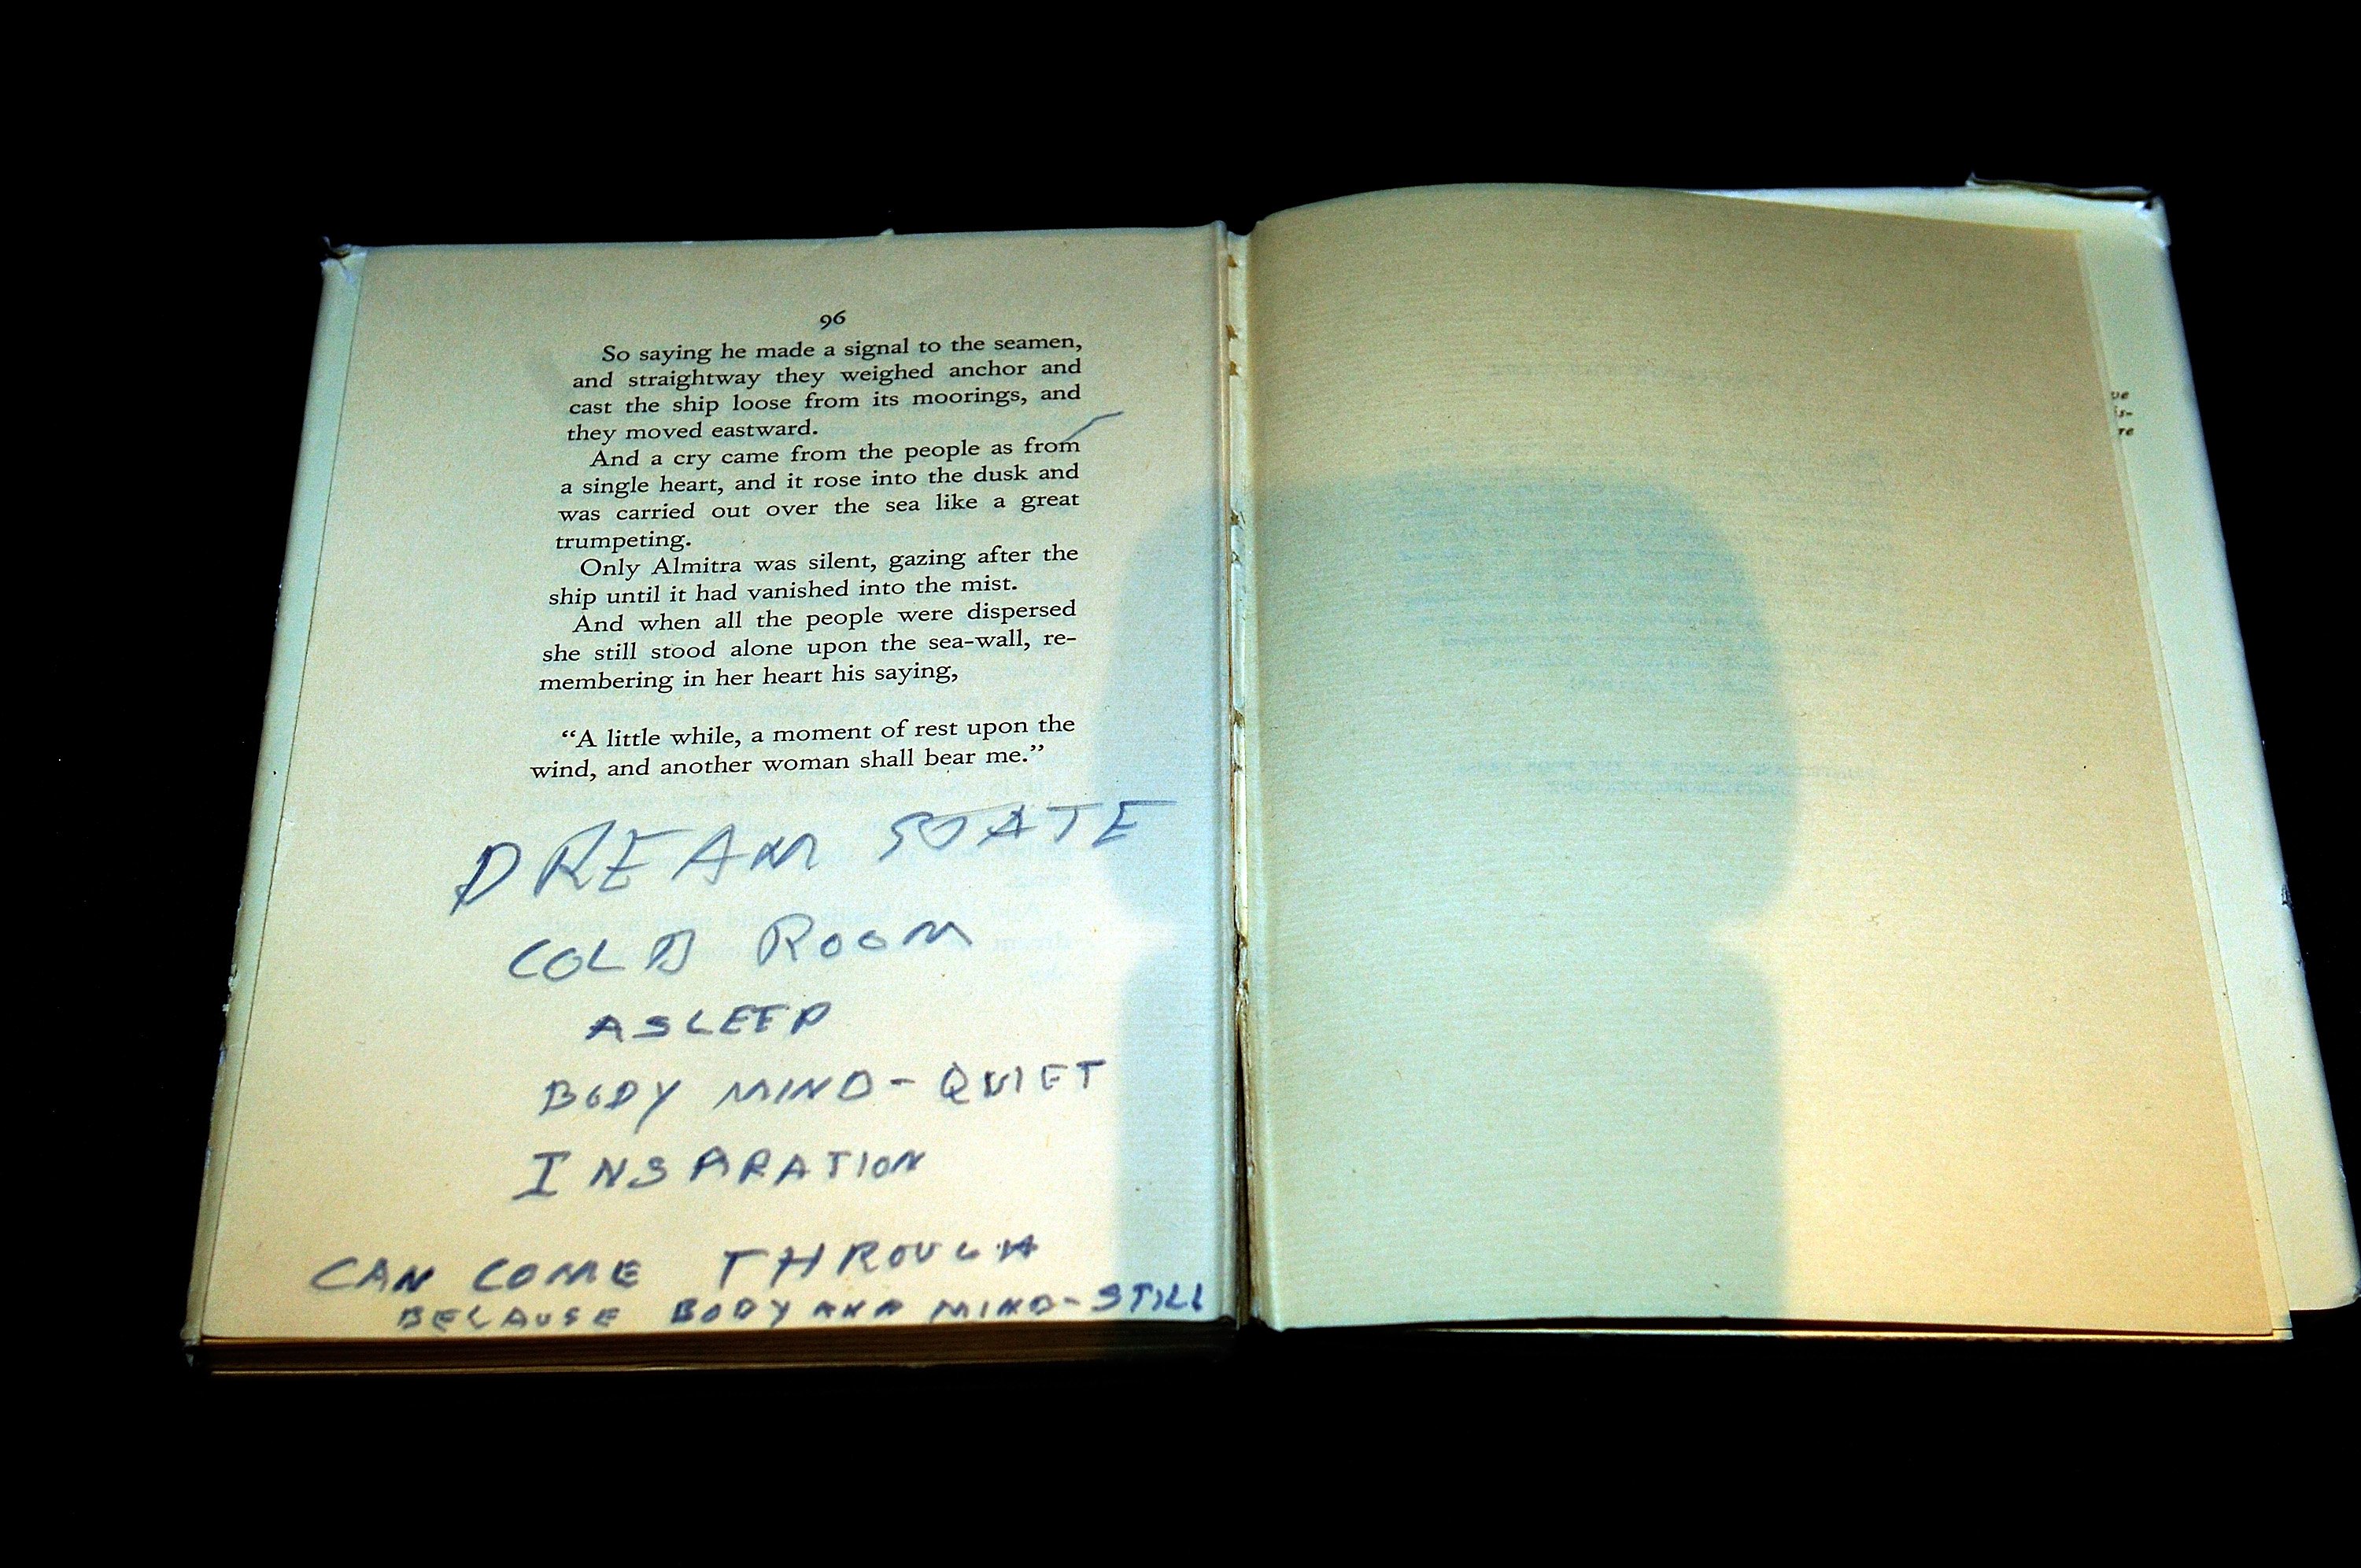 96
So saying he made a signal to the seamen,
and straightway they weighed anchor and
cast the ship loose from its moorings, and
they moved eastward.
And a cry came from the people as from
a single heart, and it rose into the dusk and
was carried out over the sea like a great
trumpeting.
Only Almitra was silent, gazing after the
ship until it had vanished into the mist.
And when all the people were dispersed
she still stood alone upon the sea-wall, re-
membering in her heart his saying,
“A little while, a moment of rest upon the
wind, and another woman shall bear me.”
DREAM STATE
COLD ROOM
ASLEEP
BODY MIND - QUIET
INSPARATION
CAN COME THROUGH
BECAUSE BODY AND MIND - STILL
ve
is-
re